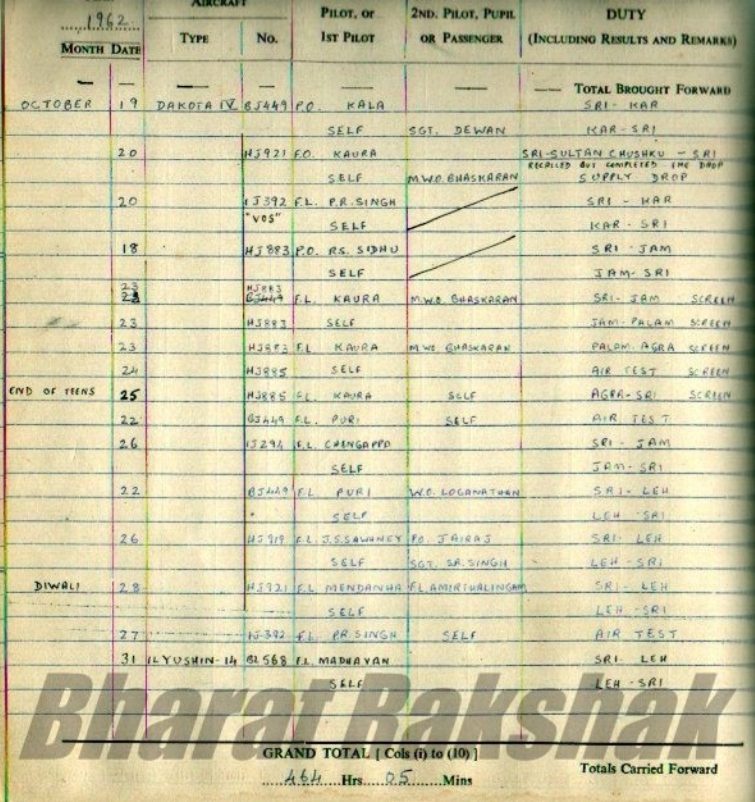 AIRCRAFT
1962
MONTH DATE TYPE No. PILOT, OR 1ST PILOT 2ND. PILOT, PUPIL OR PASSENGER DUTY (INCLUDING RESULTS AND REMARKS)
— — — — — — — TOTAL BROUGHT FORWARD
OCTOBER 19 DAKOTA IV BJ449 P.O. KALA SRI-KAR
SELF SGT. DEWAN KAR-SRI
20 HJ921 F.O. KAURA SRI-SULTAN CHUSHKU - SRI
RECALLED BUT COMPLETED THE DROP
SELF M.W.O. BHASKARAN SUPPLY DROP
20 IJ392 F.L. P.R. SINGH SRI - KAR
"VOS" SELF KAR - SRI
18 HJ883 P.O. RS. SIDHU SRI - JAM
SELF JAM-SRI
23 HJ883
BJ449 F.L. KAURA M.W.O. BHASKARAN SRI-JAM SCREEN
23 HJ883 SELF JAM-PALAM SCREEN
23 HJ883 F.L KAURA M.W.O BHASKARAN PALAM-AGRA SCREEN
24 HJ885 SELF AIR TEST SCREEN
END OF TEENS 25 HJ885 F.L. KAURA SELF AGRA-SRI SCREEN
22 BJ449 F.L. PURI SELF AIR TEST
26 IJ294 F.L. CHENGAPPA SRI - JAM
SELF JAM-SRI
22 BJ449 F.L. PURI W.O. LOGANATHAN SRI-LEH
" SELF LEH-SRI
26 HJ919 F.L. J.S. SAWHNEY P.O. JAIRAJ SRI-LEH
SELF SGT. SR. SINGH LEH-SRI
DIWALI 28 HJ921 F.L MENDANHA F.L. AMIRTHALINGAM SRI-LEH
SELF LEH-SRI
27 IJ-392 F.L. P.R. SINGH SELF AIR TEST
31 ILYUSHIN-14 BL568 F.L. MADHAVAN SRI-LEH
SELF LEH-SRI
Bharat Rakshak
GRAND TOTAL [ Cols (i) to (10) ]
464 Hrs. 05 Mins
Totals Carried Forward